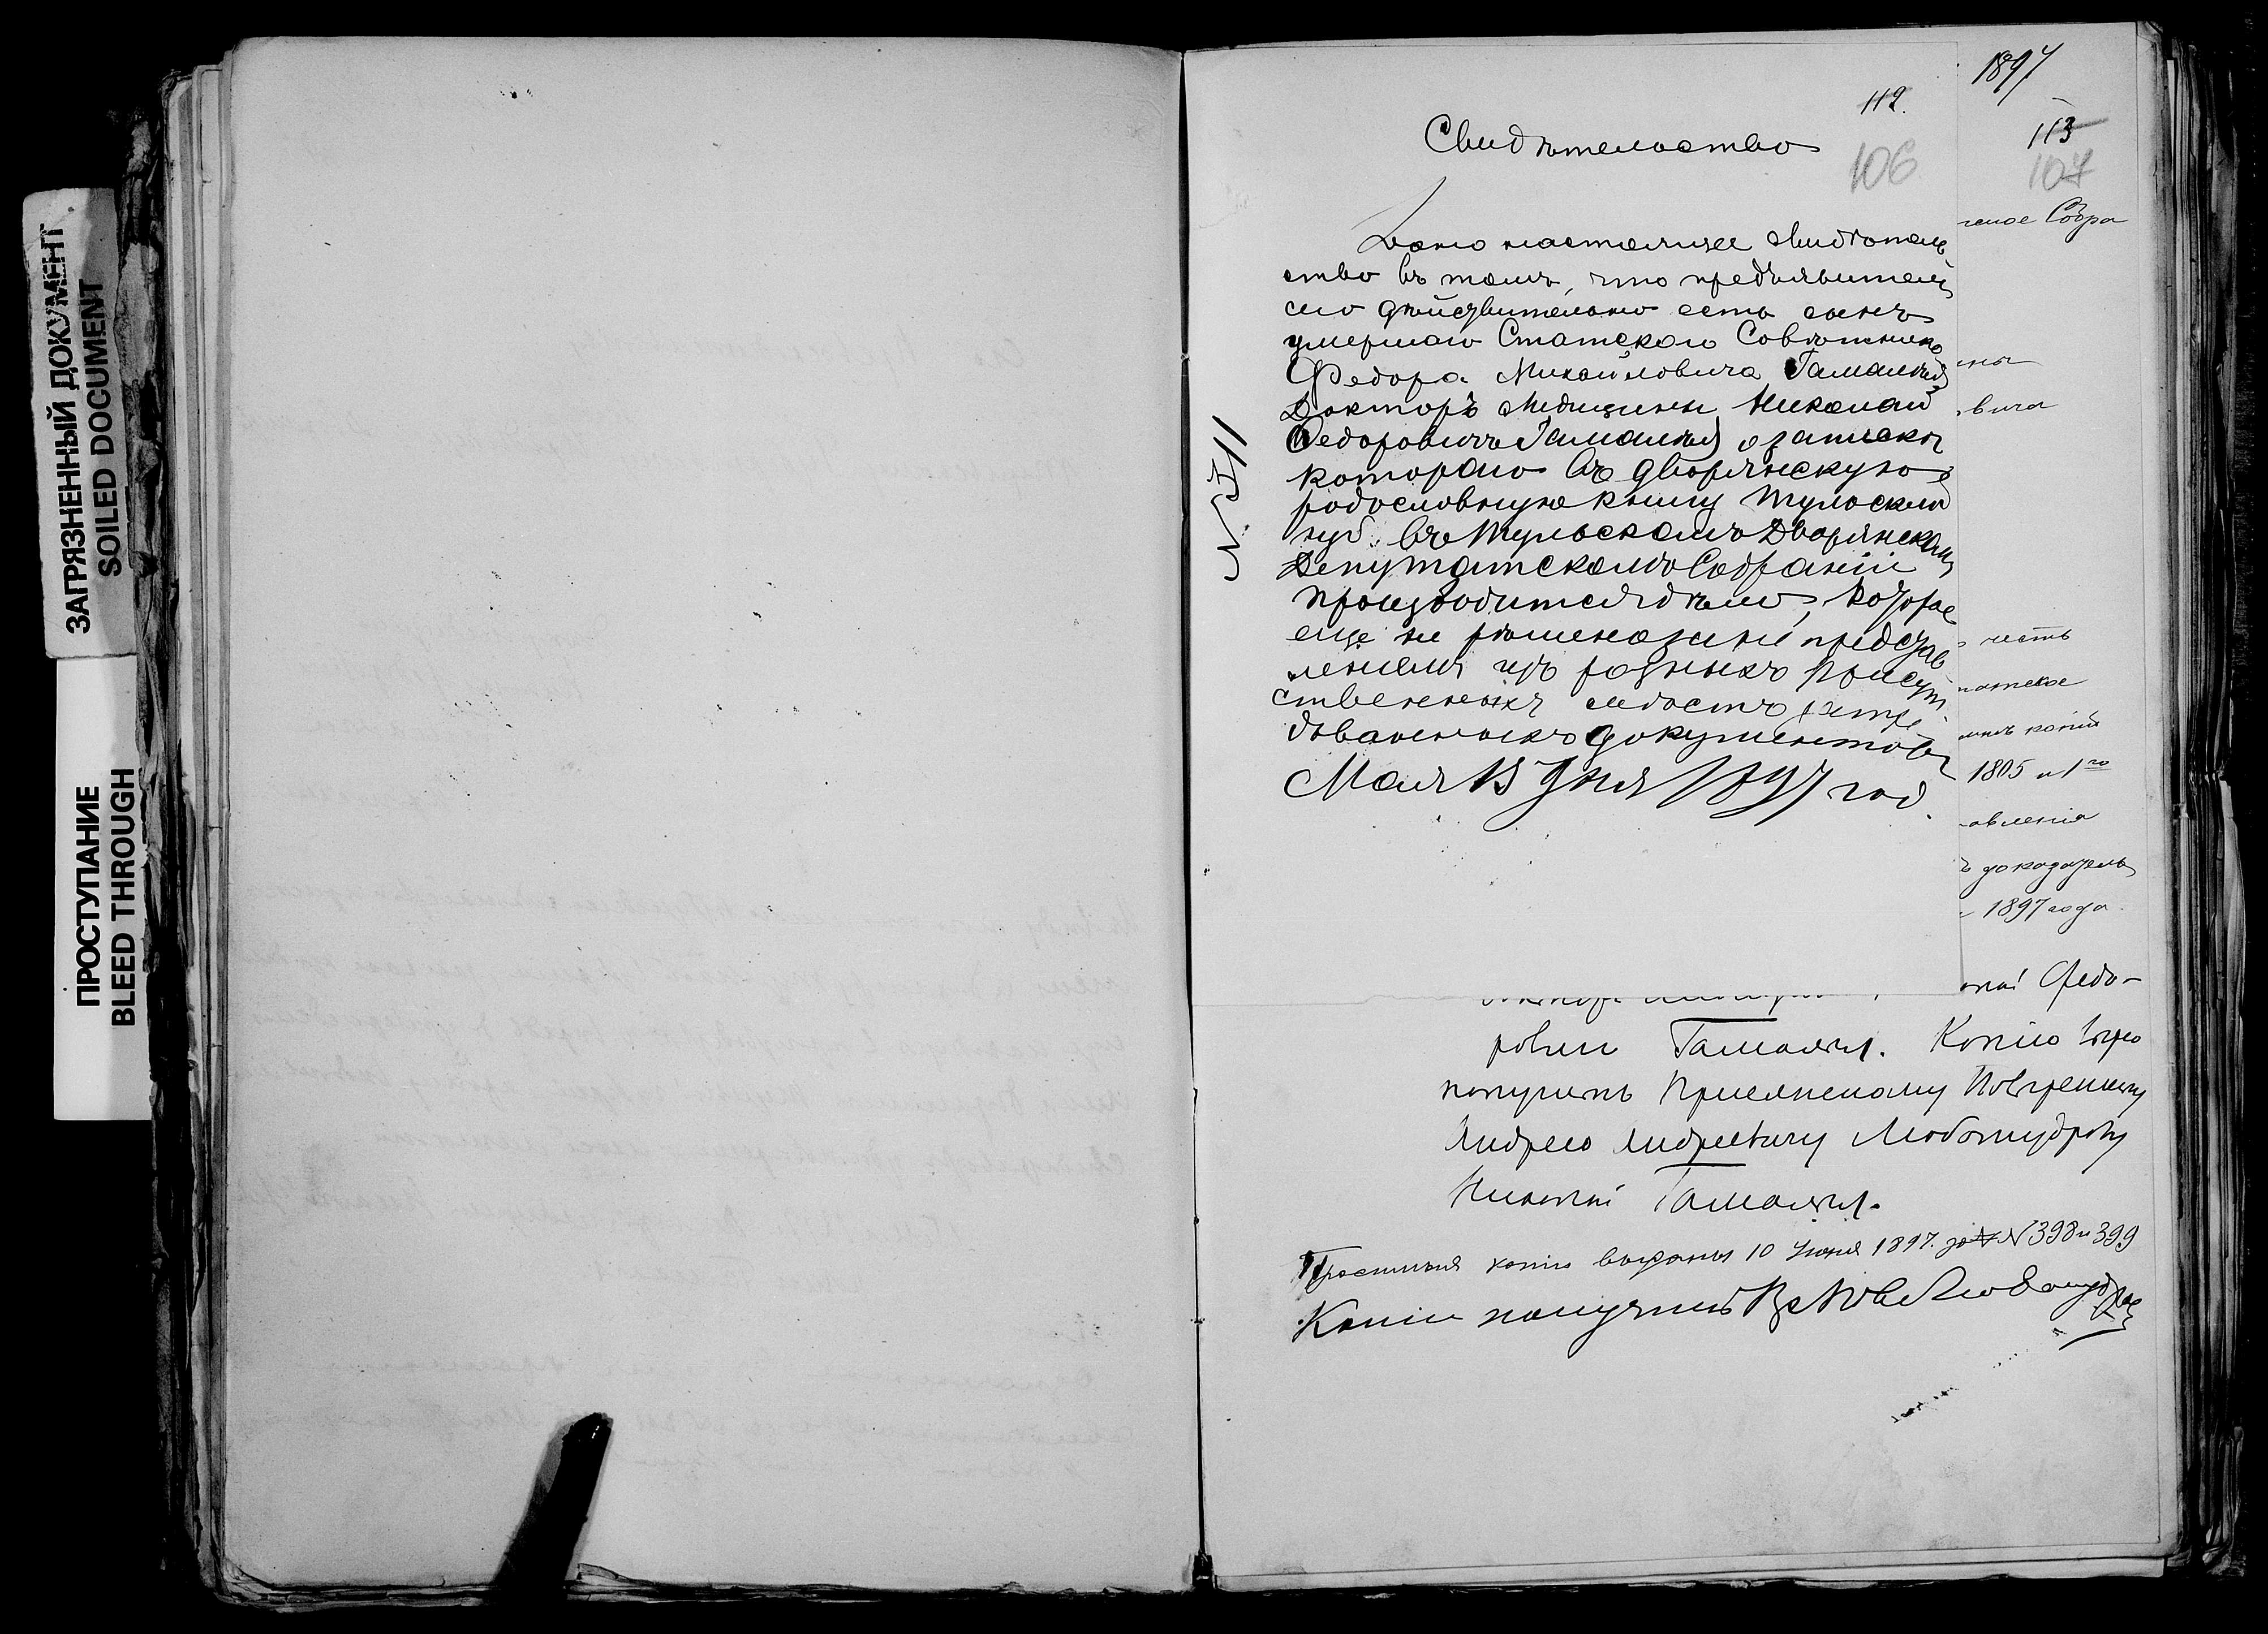 ЗАГРЯЗНЕННЫЙ ДОКУМЕНТ
SOILED DOCUMENT
ПРОСТУПАНИЕ
BLEED THROUGH
1897
112.
113
106
107
Свидѣтельство
Дано настоящее свидѣтель
ство въ томъ, что предъявитель
сего дѣйствительно есть сынъ
умершаго Статскаго Совѣтника
Федора Михайловича Гамалѣя
Докторъ Медицины Николай
Федоровичъ Гамалѣя, о запискѣ
котораго въ дворянскую
родословную книгу Тульской
губ. въ Тульскомъ Дворянскомъ
Депутатскомъ Собраніи
производится дѣло, которое
еще не рѣшено за не представ
леніемъ изъ разныхъ присут
ственныхъ мѣстъ истре
бованныхъ документовъ
Мая 13 дня 1897 год.
ское Собра
ны
вича
честь
татское
копій
1805 и 1го
овленія
ъ доказатель
1897 года.
лай Федо-
ровичъ Гамалѣя. Копію вѣрю
получить Присяжному Повѣренному
Андрею Андреевичу Любомудрову
Николай Гамалѣя.
копіи выданы 10 Іюня 1897. за № № 398 и 399
Копіи получилъ Пр Пов Любомудров